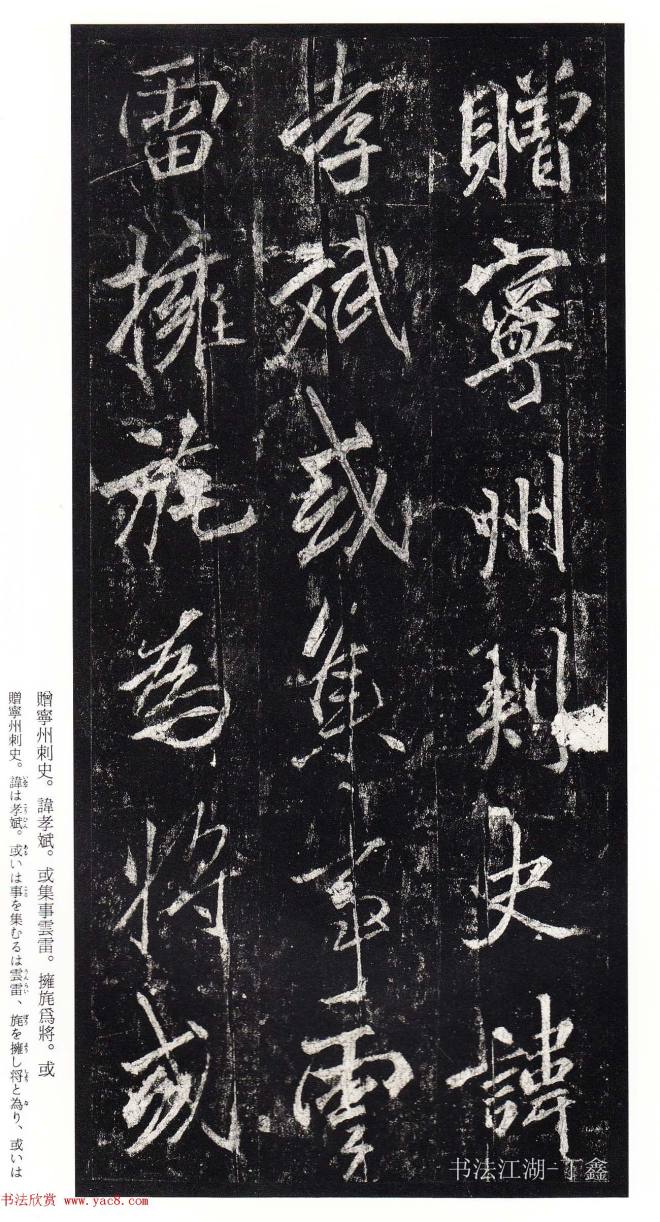 贈寧州刺史諱
孝斌或集事雲
雷擁旄為將或
贈寧州刺史。諱孝斌。或集事雲雷。擁旄爲將。或
贈寧州刺史。諱は孝斌。或いは事を集むるは雲雷、旄を擁し将と為り、或いは
书法江湖-丁鑫
书法欣赏 www.yac8.com